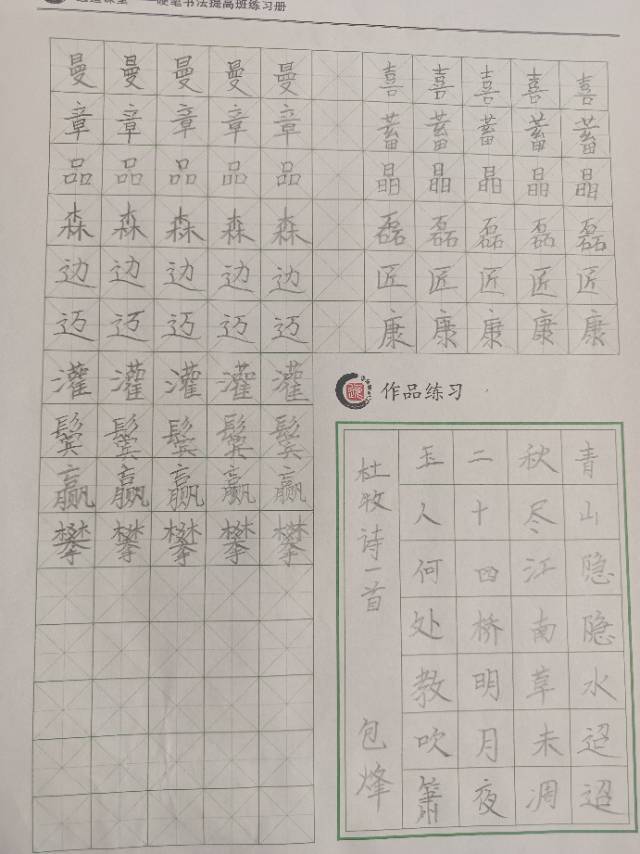 硬笔书法提高班练习册
曼曼曼曼曼
章章章章章
品品品品品
森森森森森
边边边边边
迈迈迈迈迈
灌灌灌灌灌
鬓鬓鬓鬓鬓
赢赢赢赢赢
攀攀攀攀攀
喜喜喜喜喜
蓄蓄蓄蓄蓄
晶晶晶晶晶
磊磊磊磊磊
匠匠匠匠匠
康康康康康
作品练习
青山隐隐水迢迢
秋尽江南草未凋
二十四桥明月夜
玉人何处教吹箫
杜牧诗一首 包烽